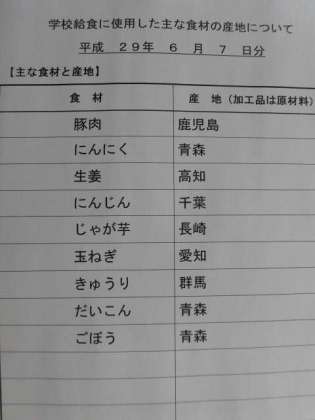 学校給食に使用した主な食材の産地について
平成 29年 6 月 7 日分
【主な食材と産地】
食 材 産 地（加工品は原材料）
豚肉 鹿児島
にんにく 青森
生姜 高知
にんじん 千葉
じゃが芋 長崎
玉ねぎ 愛知
きゅうり 群馬
だいこん 青森
ごぼう 青森